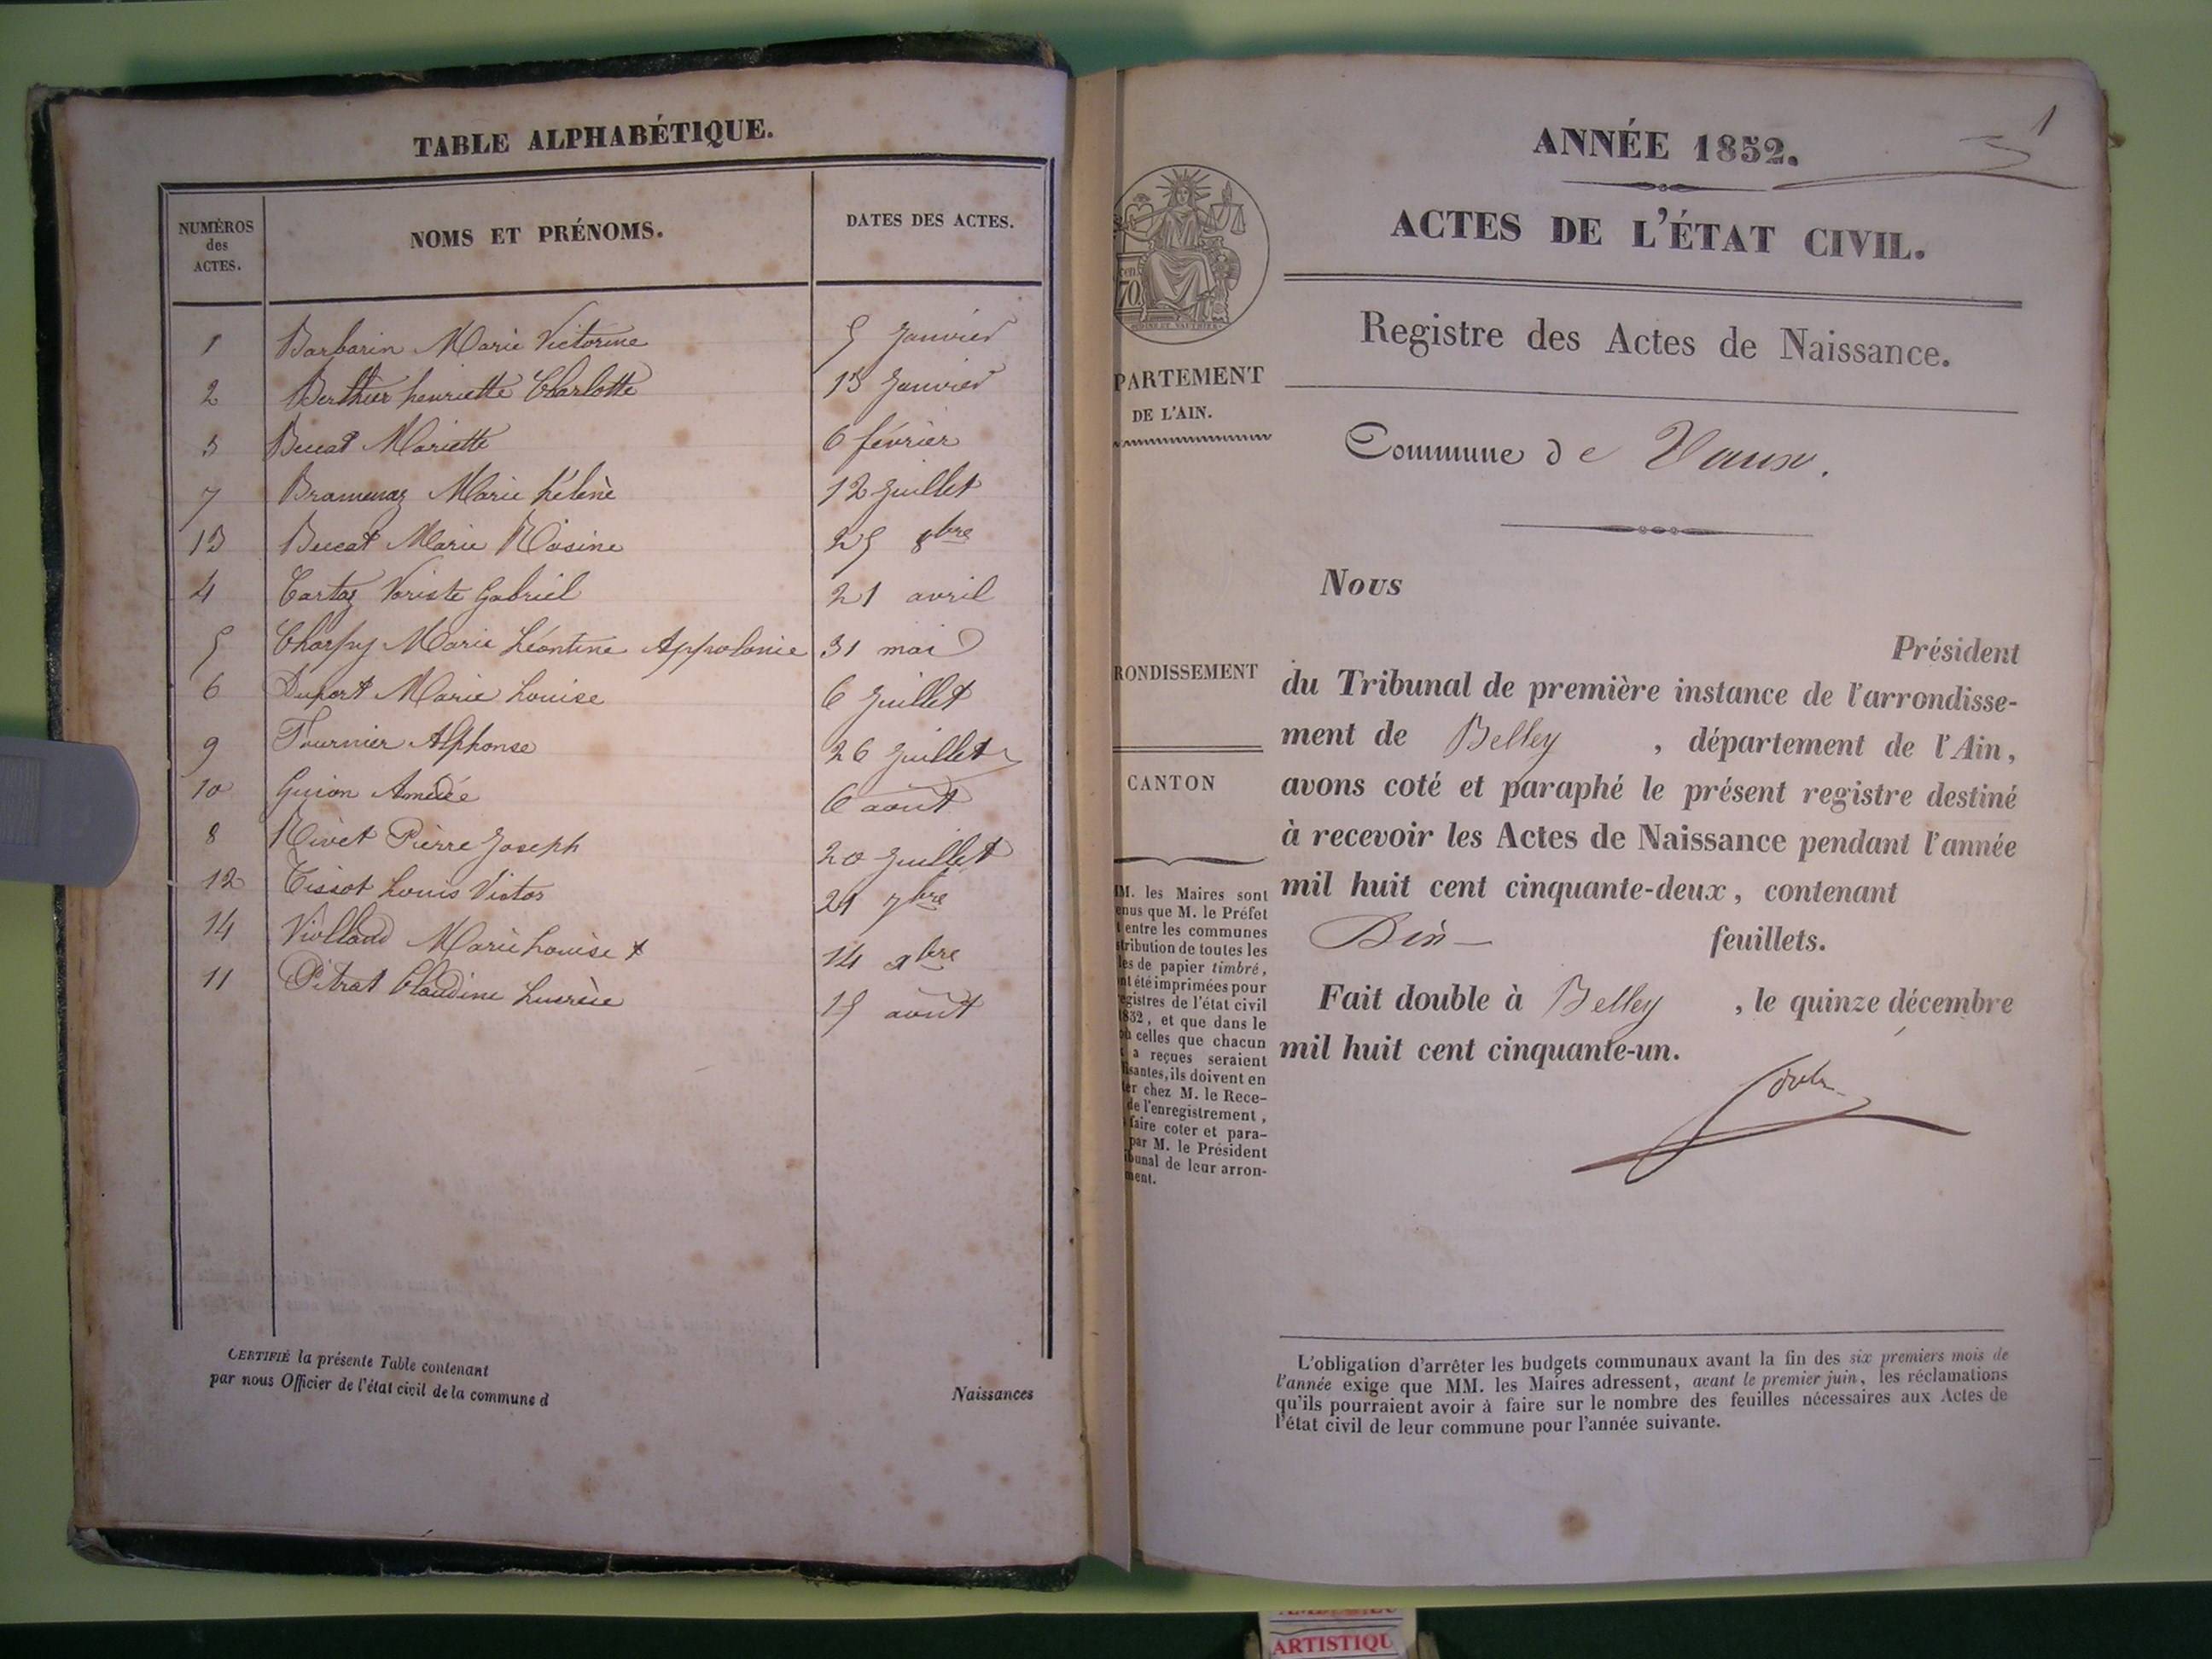 TABLE ALPHABÉTIQUE.
NUMÉROS des ACTES. NOMS ET PRÉNOMS. DATES DES ACTES.
1 Barbarin Marie Victorine 5 Janvier
2 Berthier henriette Charlotte 13 Janvier
3 Bucat Mariette 6 février
7 Bramenaz Marie hélène 12 Juillet
13 Bucat Marie Rosine 25 8bre
4 Cartaz Variste Gabriel 21 avril
5 Charpy Marie Léontine Appolonie 31 mai
6 Duport Marie Louise 6 Juillet
9 Fournier Alphonse 26 Juillet
10 Guion Amédée 6 août
8 Rivet Pierre Joseph 20 Juillet
12 Tissot Louis Victor 21 7bre
14 Violland Marie Louise 14 9bre
11 Pitrat Claudine Lucrèce 15 août
CERTIFIÉ la présente Table contenant
par nous Officier de l'état civil de la commune d
Naissances
1
ANNÉE 1852.
ACTES DE L'ÉTAT CIVIL.
Registre des Actes de Naissance.
Commune de Vaux.
Nous
Président
du Tribunal de première instance de l'arrondisse-
ment de Belley , département de l'Ain,
avons coté et paraphé le présent registre destiné
à recevoir les Actes de Naissance pendant l'année
mil huit cent cinquante-deux, contenant
Dix feuillets.
Fait double à Belley , le quinze décembre
mil huit cent cinquante-un.
L'obligation d'arrêter les budgets communaux avant la fin des six premiers mois de
l'année exige que MM. les Maires adressent, avant le premier juin, les réclamations
qu'ils pourraient avoir à faire sur le nombre des feuilles nécessaires aux Actes de
l'état civil de leur commune pour l'année suivante.
70
PARTEMENT
DE L'AIN.
RONDISSEMENT
CANTON
M. les Maires sont
enus que M. le Préfet
entre les communes
tribution de toutes les
les de papier timbré,
nt été imprimées pour
egistres de l'état civil
, et que dans le
celles que chacun
a reçues seraient
isantes, ils doivent en
er chez M. le Rece-
de l'enregistrement,
faire coter et para-
par M. le Président
bunal de leur arron-
ment.
ARTISTIQU